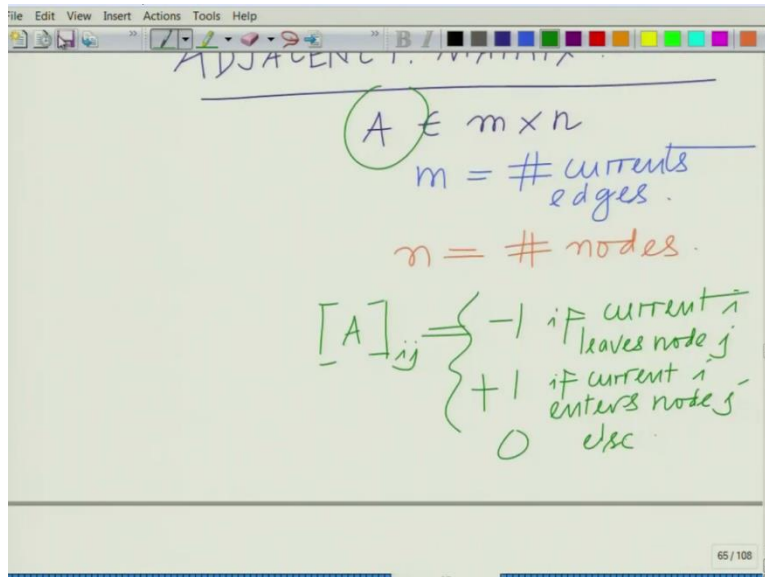 File Edit View Insert Actions Tools Help
B I
ADJACENCY MATRIX
A ∈ m × n
m = # currents
edges.
n = # nodes.
[A]ij = { -1 if current i
leaves node j
+1 if current i
enters node j
0 else
65 / 108